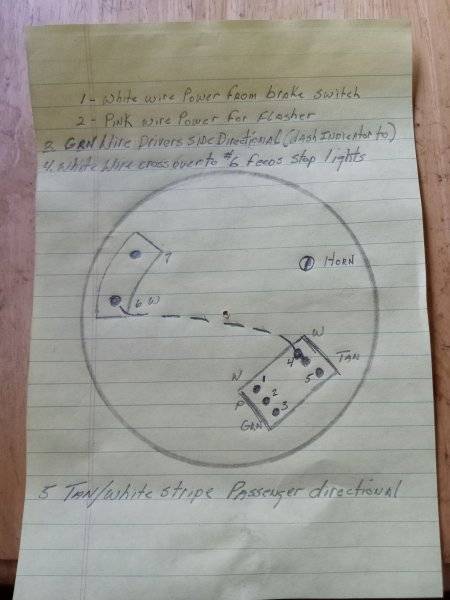 1 - White wire Power from brake switch
2 - Pink wire Power for flasher
3. GRN Wire Drivers side Directional (dash Indicator to)
4. White Wire cross over to #6 feeds stop lights
7
HORN
6 W
W
4
TAN
W
1
5
P
2
3
GRN
5 TAN/white stripe Passenger directional